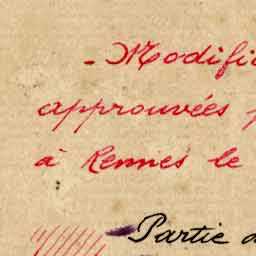 - Modific
approuvées p
à Rennes le
Partie d